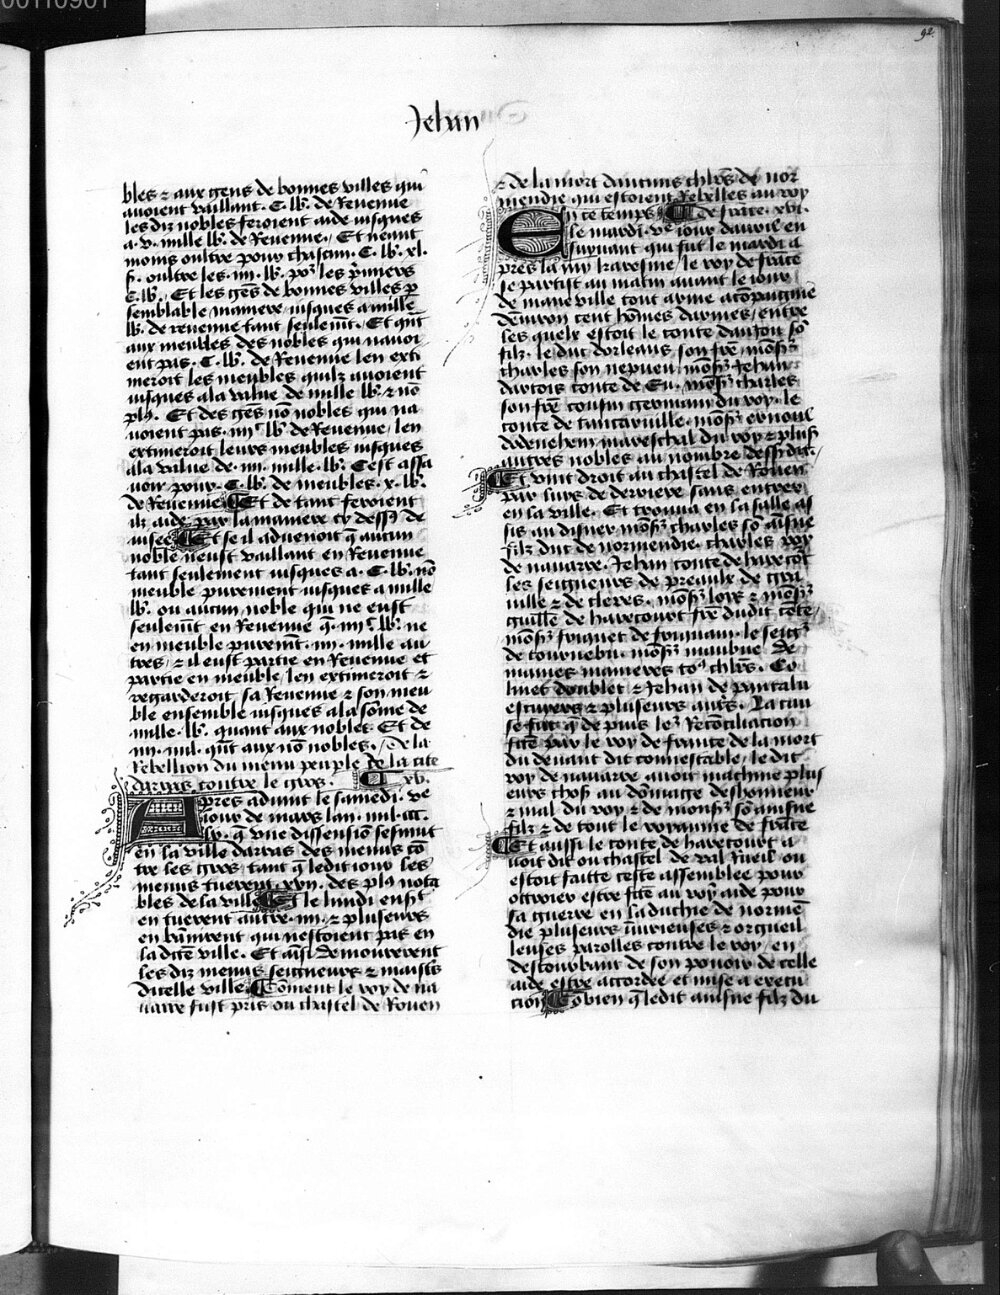 00110901
92
Jehan
bles ⁊ aux gens de bonnes villes qui
auoient vaillant .C. lb. de Reuenue
les diz nobles feroient aide iusques
a .v. mille lb. de Reuenue. Et neant
moins oultre pour chascun .C. lb. .xl.
s. oultre les .iiii. lb. por les p̃miers
.C. lb. Et les gẽs de bonnes villes p̱
semblable maniere iusques a mille
lb. de reuenue tant seulemt̃. Et qñt
aux meubles des nobles qui nauoi
ent pas .C. lb. de Reuenue len exti
meroit les meubles quilz auoient
iusques ala value de mille lb. ⁊ nõ
plꝯ. Et des gẽs nõ nobles qui na
uoient pas .iiiiᶜ. lb. de Reuenue / len
extimeroit leurs meubles iusques
ala value de .iiii. mille. lb. Cest assa
uoir pour .C. lb. de meubles .x. lb.
de Reuenue ¶ Et de tant feroient
ilz aide par la maniere cy dessꝯ de
uisee ¶ Et se il aduenoit q̃ aucun
noble neust vaillant en Reuenue
tant seulement iusques a .C. lb. nõ
meuble purement iusques a mille
lb. ou aucun noble qui ne eust
seulemt̃ en Reuenue q̃ .iiiiᶜ. lb. ne
en meuble puremt̃ .iiii. mille au
tres / ⁊ il eust partie en Reuenue et
partie en meuble / len extimeroit ⁊
regarderoit sa Reuenue ⁊ son meu
ble ensemble iusques ala sõme de
mille. lb. quant aux nobles. Et de
.iiii. mil. qñt aux nõ nobles. / De la
Rebellion du menu peuple de la cite
darras contre le gros. ¶ .xv.
Apres aduint le samedi .ve
iour de mars lan .mil .ccc.
.lv. q̃ vne dissensiõ sesmut
en la ville darras des menus cõ
tre les gros / tant q̃ ledit iour les
menus tuerent .xvii. des plꝯ nota
bles de la ville ¶ Et le lundi ensꝰ
en tuerent autre .iiii. ⁊ plusieurs
en bãnirent qui nestoient pas en
la ditte ville. Et aĩsi demourerent
les diz menus seigneurs ⁊ maistres
dicelle ville. ¶ Cõment le roy de na
uarre fust pris ou chastel de Rouen
⁊ de la mort daucuns chlr̃s de nor
mendie qui estoient Rebelles au roy
En ce temps ¶ de frãce .xvi.
le mardi .ve iour dauril en
suyuant qui fut le mardi a
pres la my karesme / le roy de frãce
se partist au matin auant le iour
de mane ville tout arme acõpaigne
denuiron cent hõmes darmes / entre
les quelx estoit le conte daniou sõ
filz. le duc dorleans son fr̃e mõsr̃
charles son nepueu / mõsr̃ Jehan
dartois conte de Eu. mõsr̃ charles
son fr̃e cousin germain du roy. le
conte de tancaruille. mõsr̃ ernoul
dodenehem mareschal du roy ⁊ plusr̃
autres nobles au nombre dessꝯ dit.
¶ Et vint droit au chastel de Rouen
par luys de derriere sans entrer
en la ville. Et trouua en la salle as
sis au disner mõsr̃ charles sõ aisne
filz duc de normendie. charles roy
de nauarre. Jehan conte de harecort
les seigneurs de preaulx de gra
uille ⁊ de cleres. mõsr̃ loys ⁊ mõsr̃
guille de harecourt fr̃e dudit cõte /
mõsr̃ friquet de friquam. le seigr̃
de tournebu. mõsr̃ maubue de
mames maneres toꝯ chlr̃s. Co
linet doublet ⁊ Jehan de pantalu
escuyers ⁊ plusieurs autr̃s. La cau
se fut q̃ de puis lez Recõciliation
fc̃te par le roy de france de la mort
du deuant dit connestable / le dit
roy de nauarre auoit machine plus
eurs chos̃ au dõmaige deshonneur
⁊ mal du roy ⁊ de monsr̃ sõ aisne
filz ⁊ de tout le royaume de frãce
¶ Et aussi le conte de harecourt a
uoit dit ou chastel de val Rueil ou
estoit faitte ceste assemblee pour
ottroier estre fc̃te au roy aide pour
sa guerre en la duchie de normẽ
die plusieurs iniurieuses ⁊ orgueil
leuses parolles contre le roy / en
destourbant de son pouoir de celle
aide estre accordee et mise a execu
cion ¶ Cõbien q̃ ledit aisne filz du